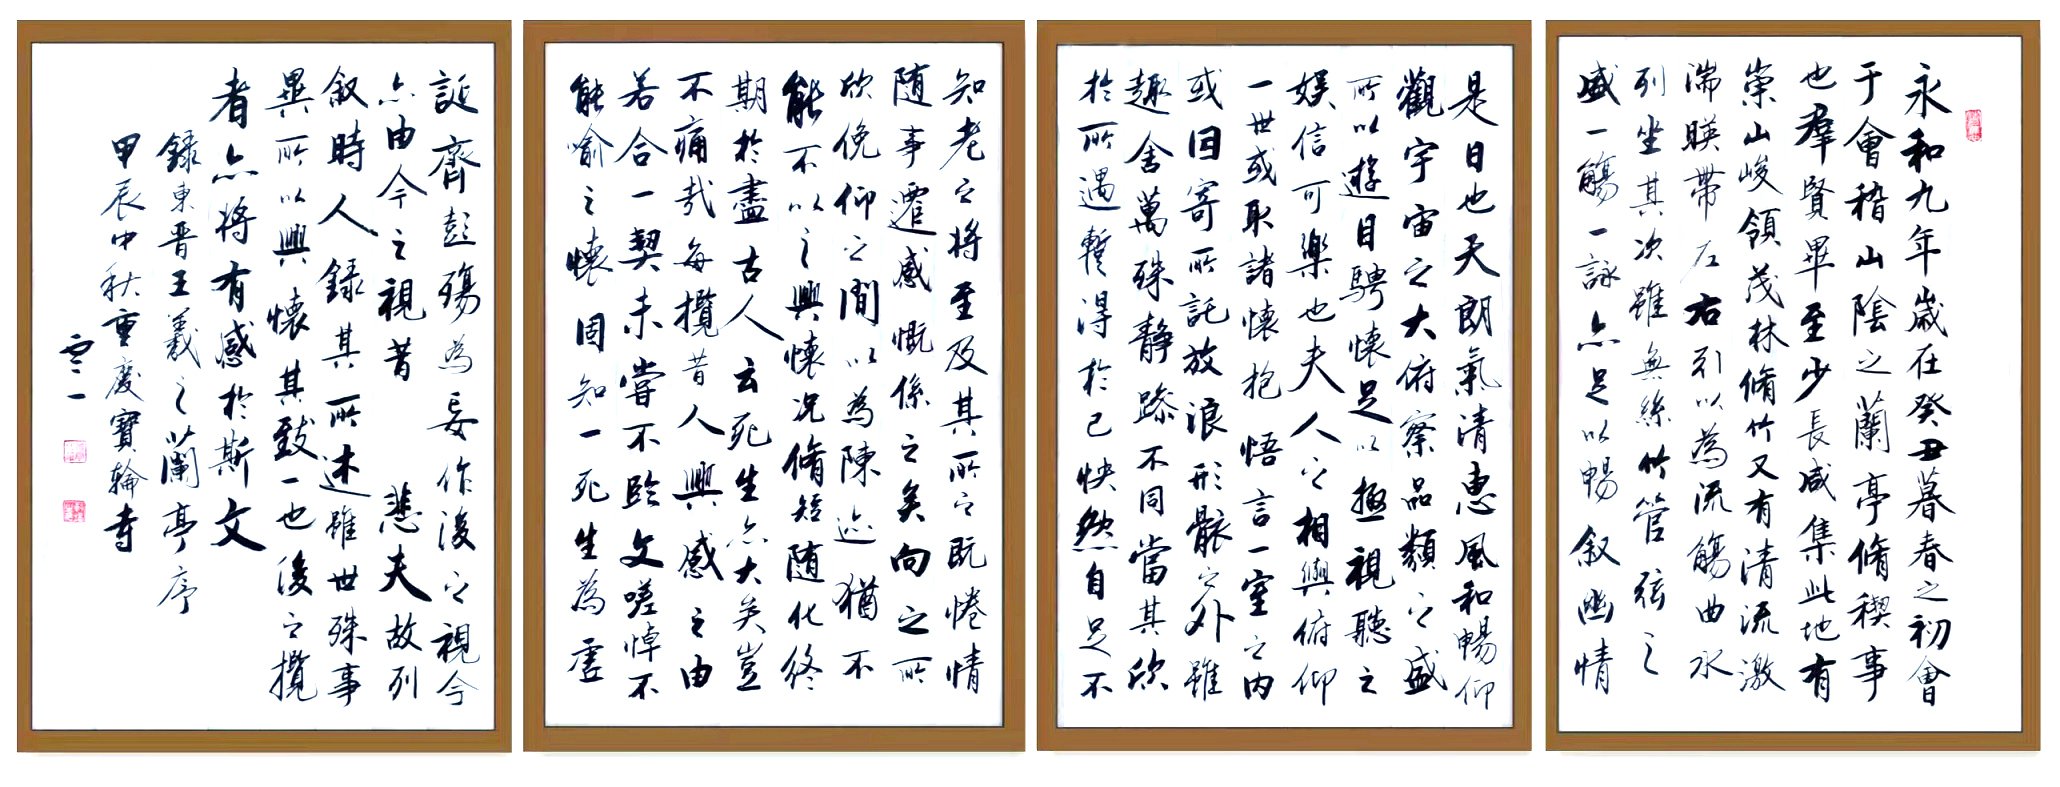 永和九年歲在癸丑暮春之初會
于會稽山陰之蘭亭脩稧事
也羣賢畢至少長咸集此地有
崇山峻領茂林脩竹又有清流激
湍暎帶左右引以為流觴曲水
列坐其次雖無絲竹管弦之
盛一觴一詠亦足以暢叙幽情
是日也天朗氣清惠風和暢仰
觀宇宙之大俯察品類之盛
所以遊目騁懷足以極視聽之
娱信可樂也夫人之相與俯仰
一世或取諸懷抱悟言一室之内
或因寄所託放浪形骸之外雖
趣舍萬殊靜躁不同當其欣
於所遇暫得於己怏然自足不
知老之將至及其所之既惓情
随事遷感慨係之矣向之所
欣俛仰之間以為陳迹猶不
能不以之興懷况脩短随化終
期於盡古人云死生亦大矣豈
不痛哉每攬昔人興感之由
若合一契未嘗不臨文嗟悼不
能喻之懷固知一死生為虛
誕齊彭殤為妄作後之視今
亦由今之視昔悲夫故列
叙時人錄其所述雖世殊事
異所以興懷其致一也後之攬
者亦將有感於斯文
錄東晋王羲之蘭亭序
甲辰中秋重慶寶輪寺
雲一